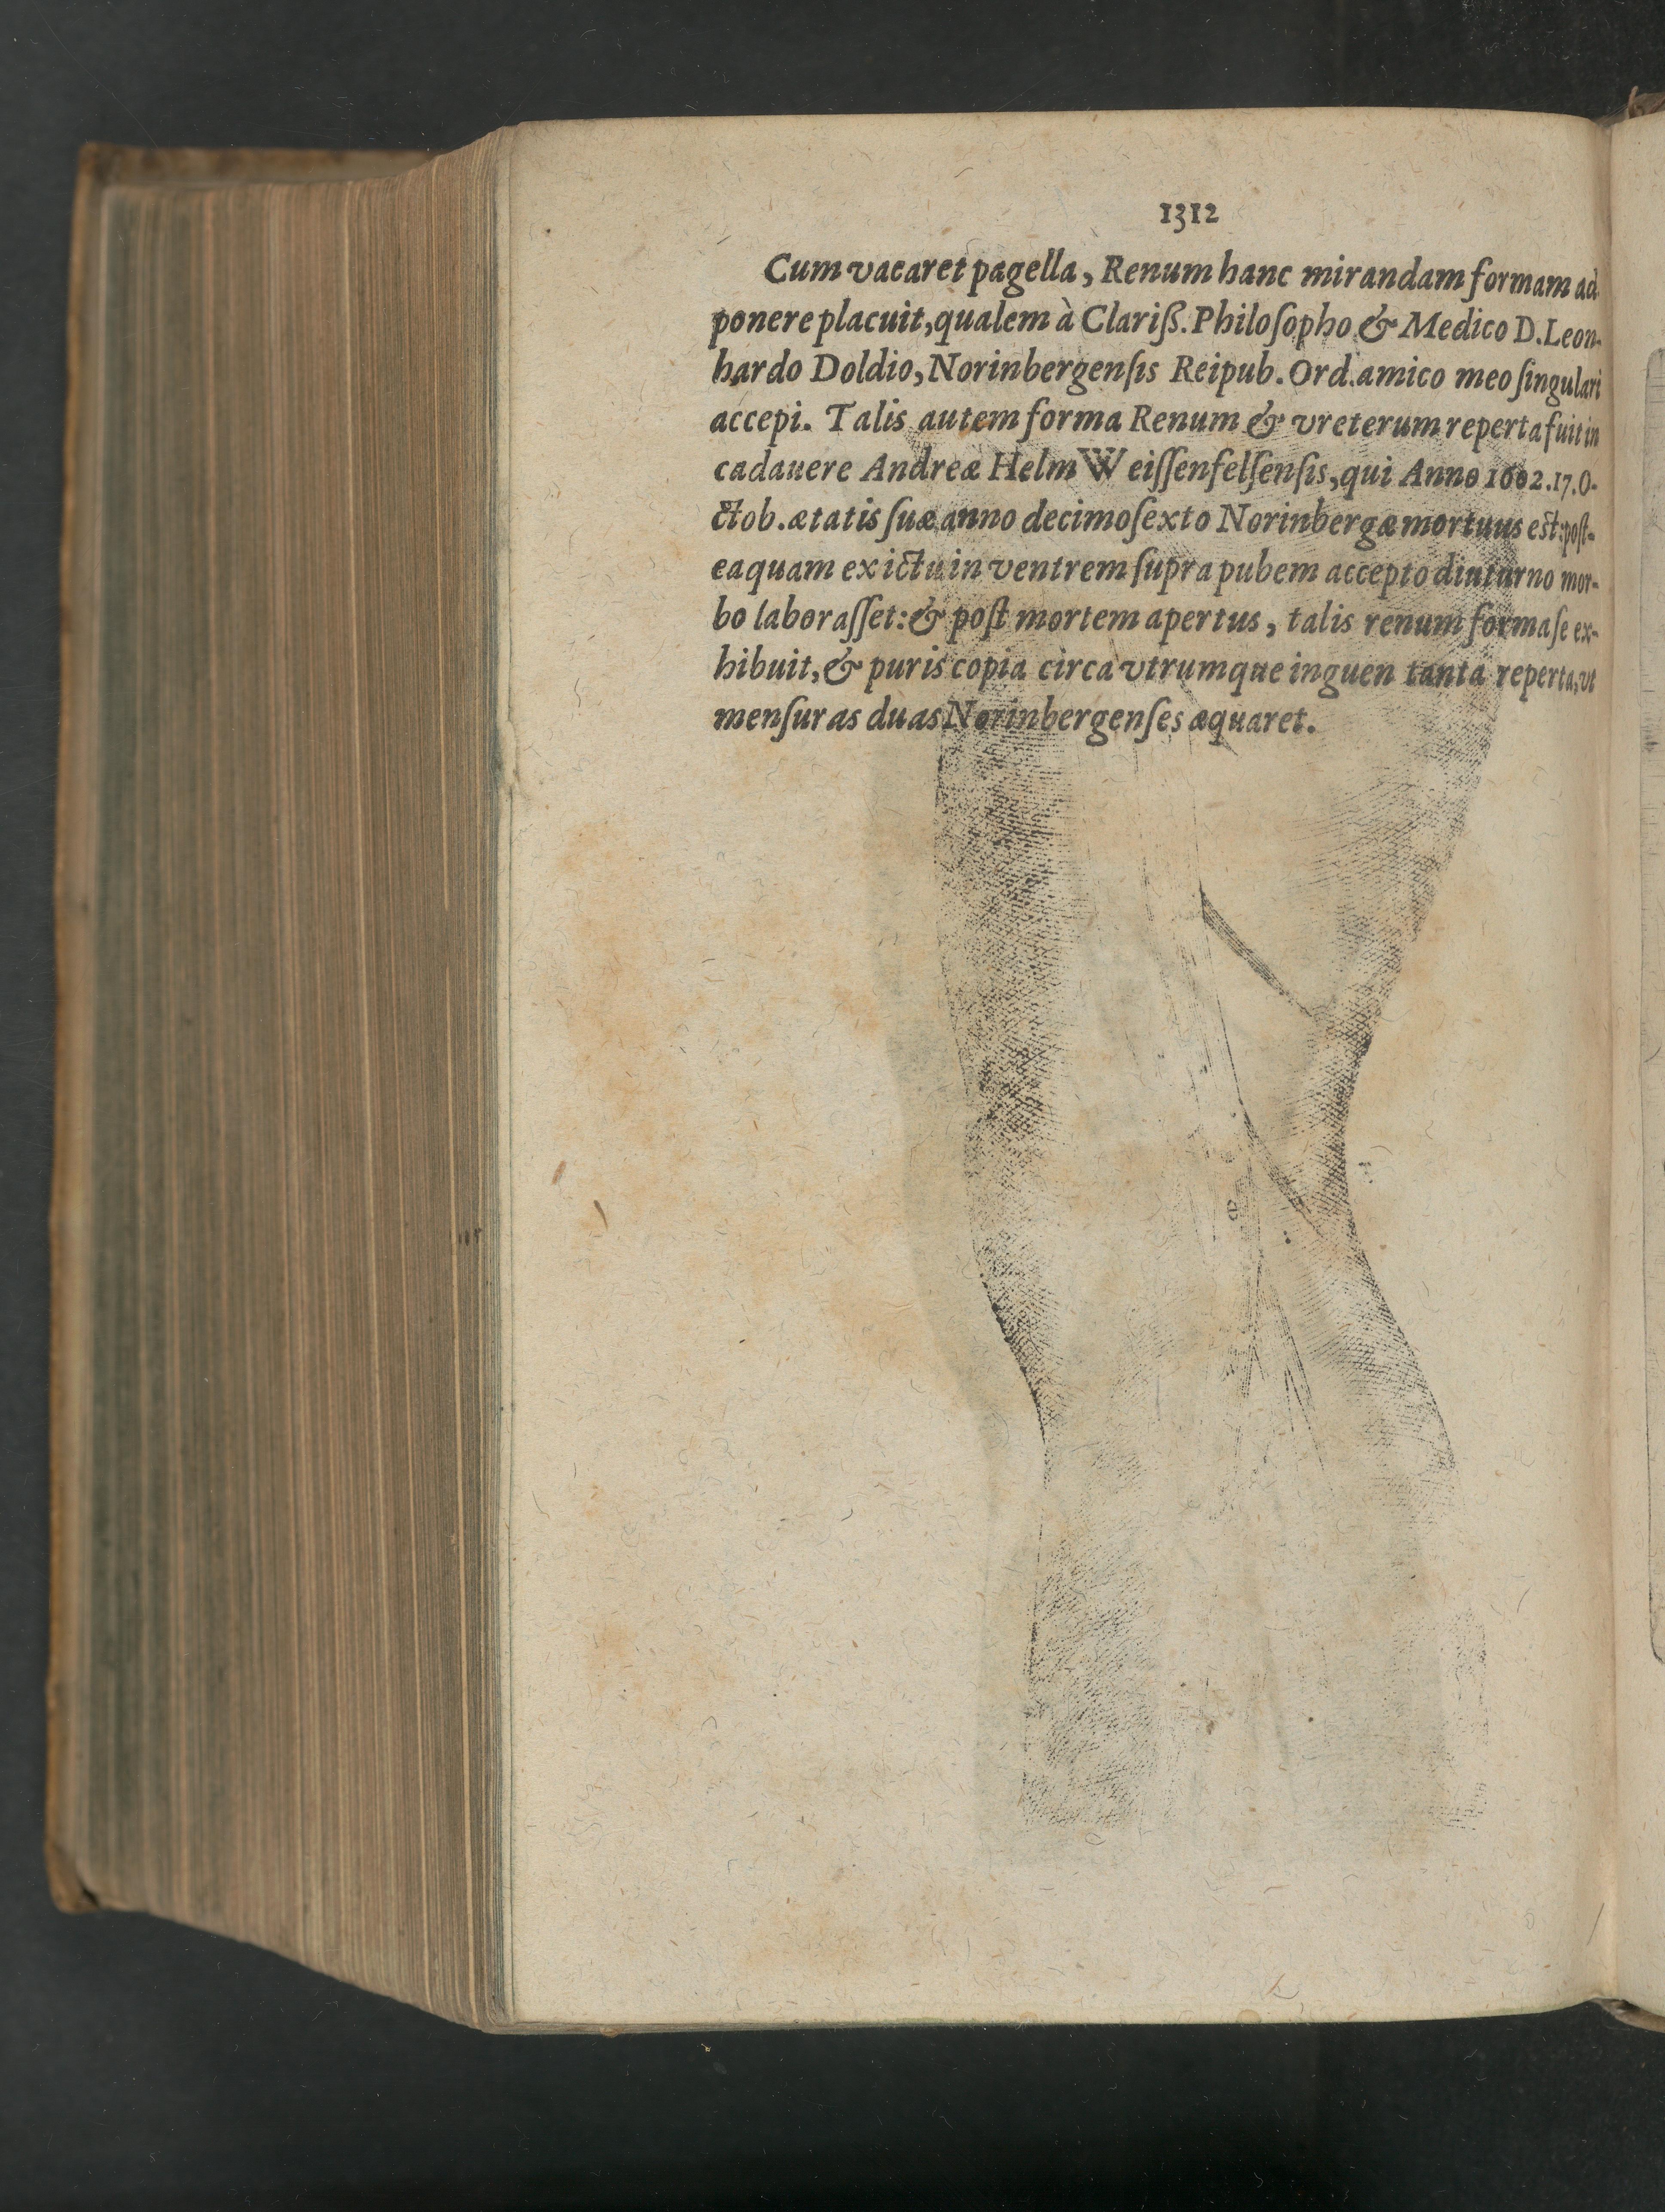 1312
Cum vacaret pagella, Renum hanc mirandam formam ad-
ponere placuit, qualem à Clariß. Philoſopho & Medico D. Leon-
hardo Doldio, Norinbergenſis Reipub. Ord. amico meo ſingulari
accepi. Talis autem forma Renum & vreterum reperta fuit in
cadauere Andreæ Helm Weiſſenfelſenſis, qui Anno 1602. 17. O-
ctob. ætatis ſuæ anno decimoſexto Norinbergæ mortuus est: poſt-
eaquam ex ictu in ventrem ſupra pubem accepto diuturno mor-
bo laboraſſet: & poſt mortem apertus, talis renum forma ſe ex-
hibuit, & puris copia circa vtrumque inguen tanta reperta, vt
menſuras duas Norinbergenſes æquaret.